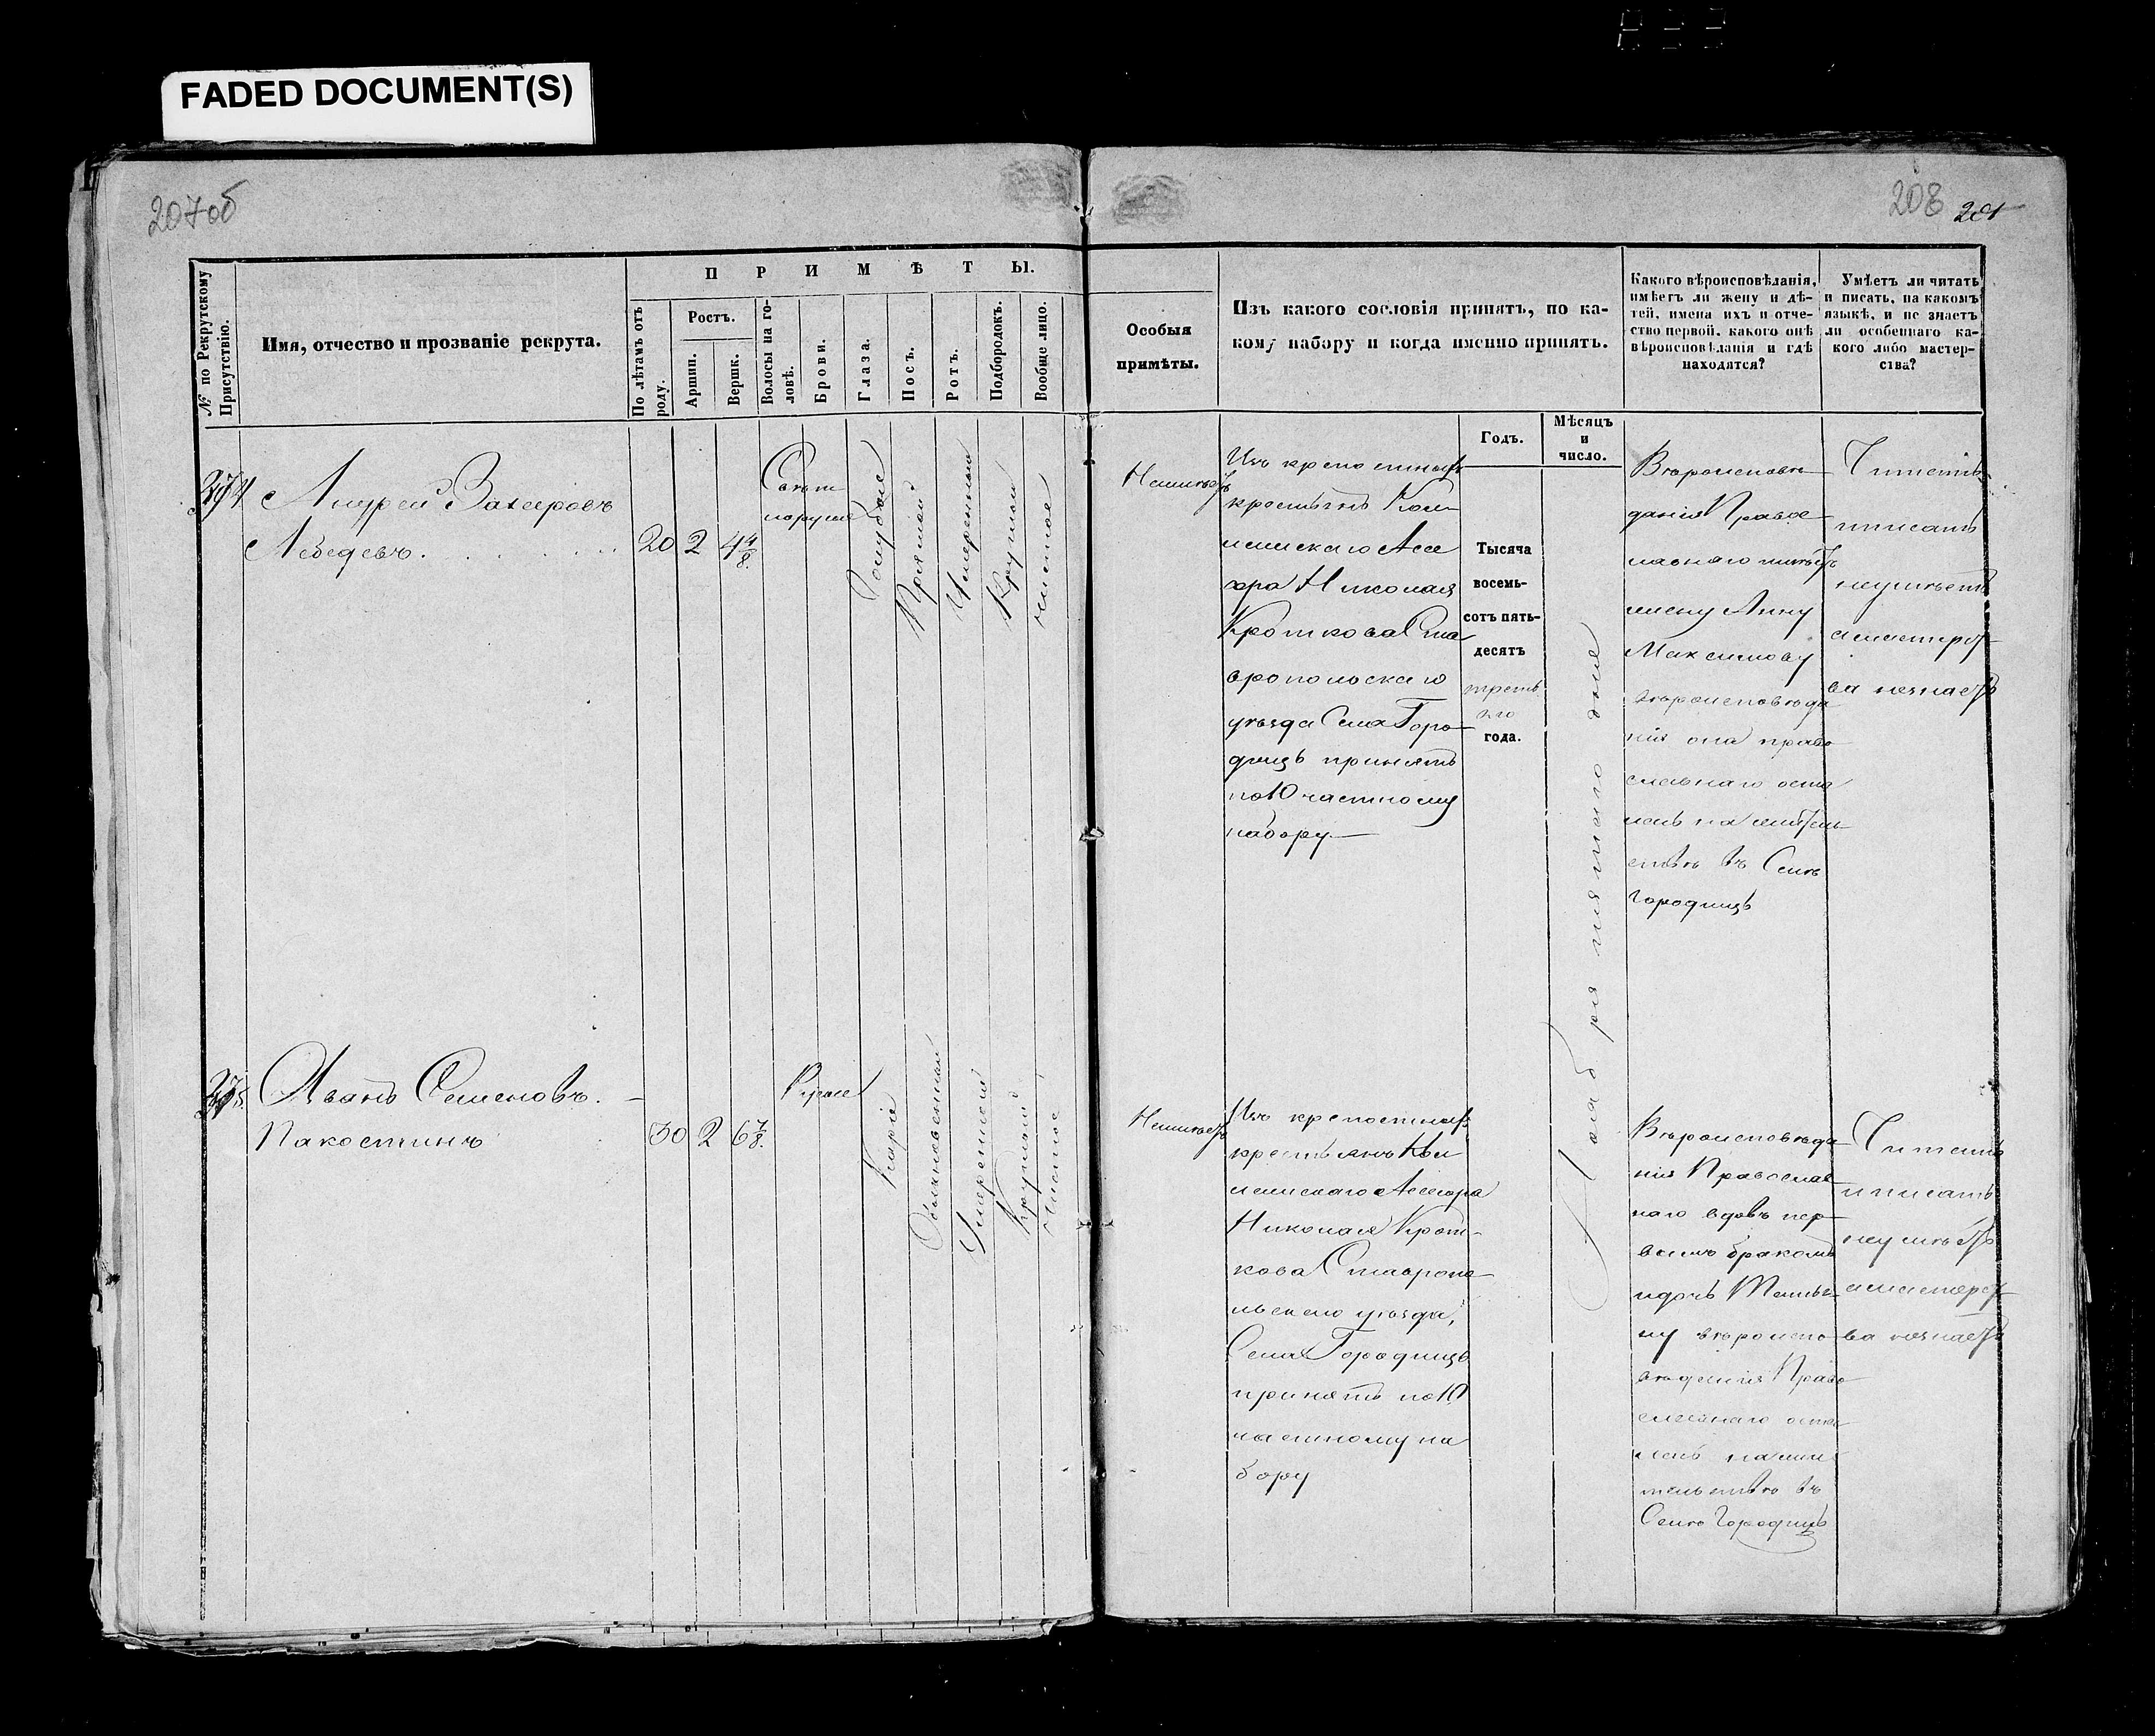 FADED DOCUMENT(S)
207об
208
201
№ по Рекрутскому Присутствію.
Имя, отчество и прозваніе рекрута.
ПРИМѢТЫ.
По лѣтамъ отъ роду.
Ростъ.
Аршин.
Вершк.
Волосы на головѣ.
Брови.
Глаза.
Носъ.
Ротъ.
Подбородокъ.
Вообще лицо.
Особыя
примѣты.
Изъ какого сословія принятъ, по ка-
кому набору и когда именно принятъ.
Годъ.
Мѣсяцъ
и
число.
Какого вѣроисповѣданія,
имѣетъ ли жену и дѣ-
тей, имена ихъ и отче-
ство первой, какого онѣ
вѣроисповѣданія и гдѣ
находятся?
Умѣетъ ли читать
и писать, на какомъ
языкѣ, и не знаетъ
ли особеннаго ка-
кого либо мастер-
ства?
374
Андрей Захаровъ
Лебедевъ
20
2
4 4/8
Свѣт
лорусые
Голубые
Прямой
Умеренный
Круглый
чистое
Неимѣетъ
Изъ крепостныхъ
крестьянъ Кол
лежскаго Асе
сора Николая
Кроткова Ста
вропольскаго
уѣзда Села Горо
дищь принятъ
по 10 частному
набору.
Тысяча
восемь-
сотъ пять-
десятъ
треть
яго
года.
Ноября пятого дня
Вѣроисповѣ
данія Правос
лавнаго имѣетъ
жену Анну
Максимову
вѣроисповѣда
нія она право
славнаго оста
лась на житель
ствѣ въ Селѣ
Городищь
Читать
писать
неумѣетъ
а мастерст
ва незнаетъ
375
Иванъ Семеновъ.
Пакостинъ
30
2
6 7/8
Русые
Карие
Обыкновенный
Умеренный
Круглый
чистое
Неимѣетъ
Изъ крепостныхъ
крестьянъ Кол
лежскаго Асесора
Николая Крот-
кова Ставропо
льскаго уѣзда,
Села Городищь
принятъ по 10
частному на
бору
Вѣроисповѣда
нія Православ
наго вдовъ пер
вымъ бракомъ
идочь Татья
ну вѣроиспо
вѣданія Право
славнаго оста
лась на жи
тельствѣ въ
Селѣ Городищь
Читать
писать
неумѣетъ
а мастерст
ва незнаетъ